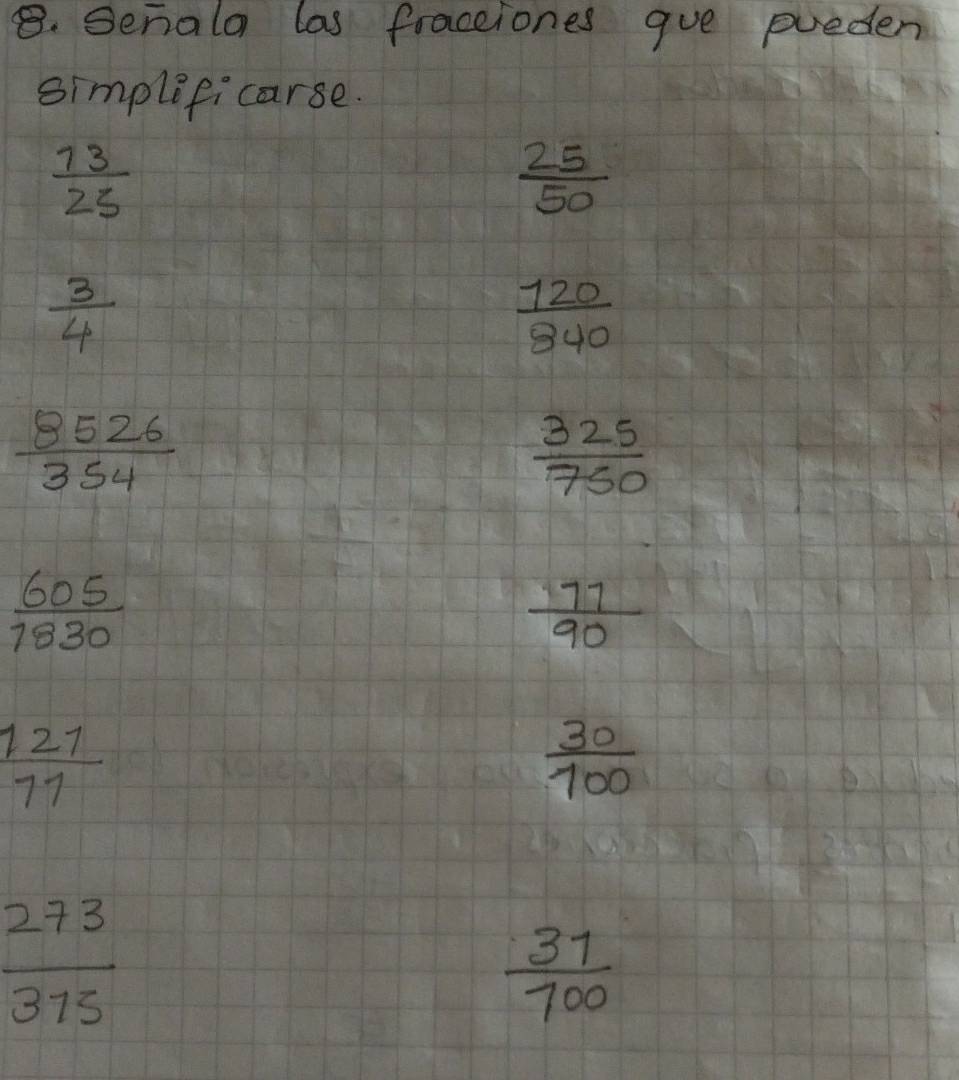 8. Señala las fracciones que pueden
simplificarse.
13/25 25/50
3/4 120/840
8526/354 325/750
605/1830 11/90
121/11 30/100
273/315 31/100